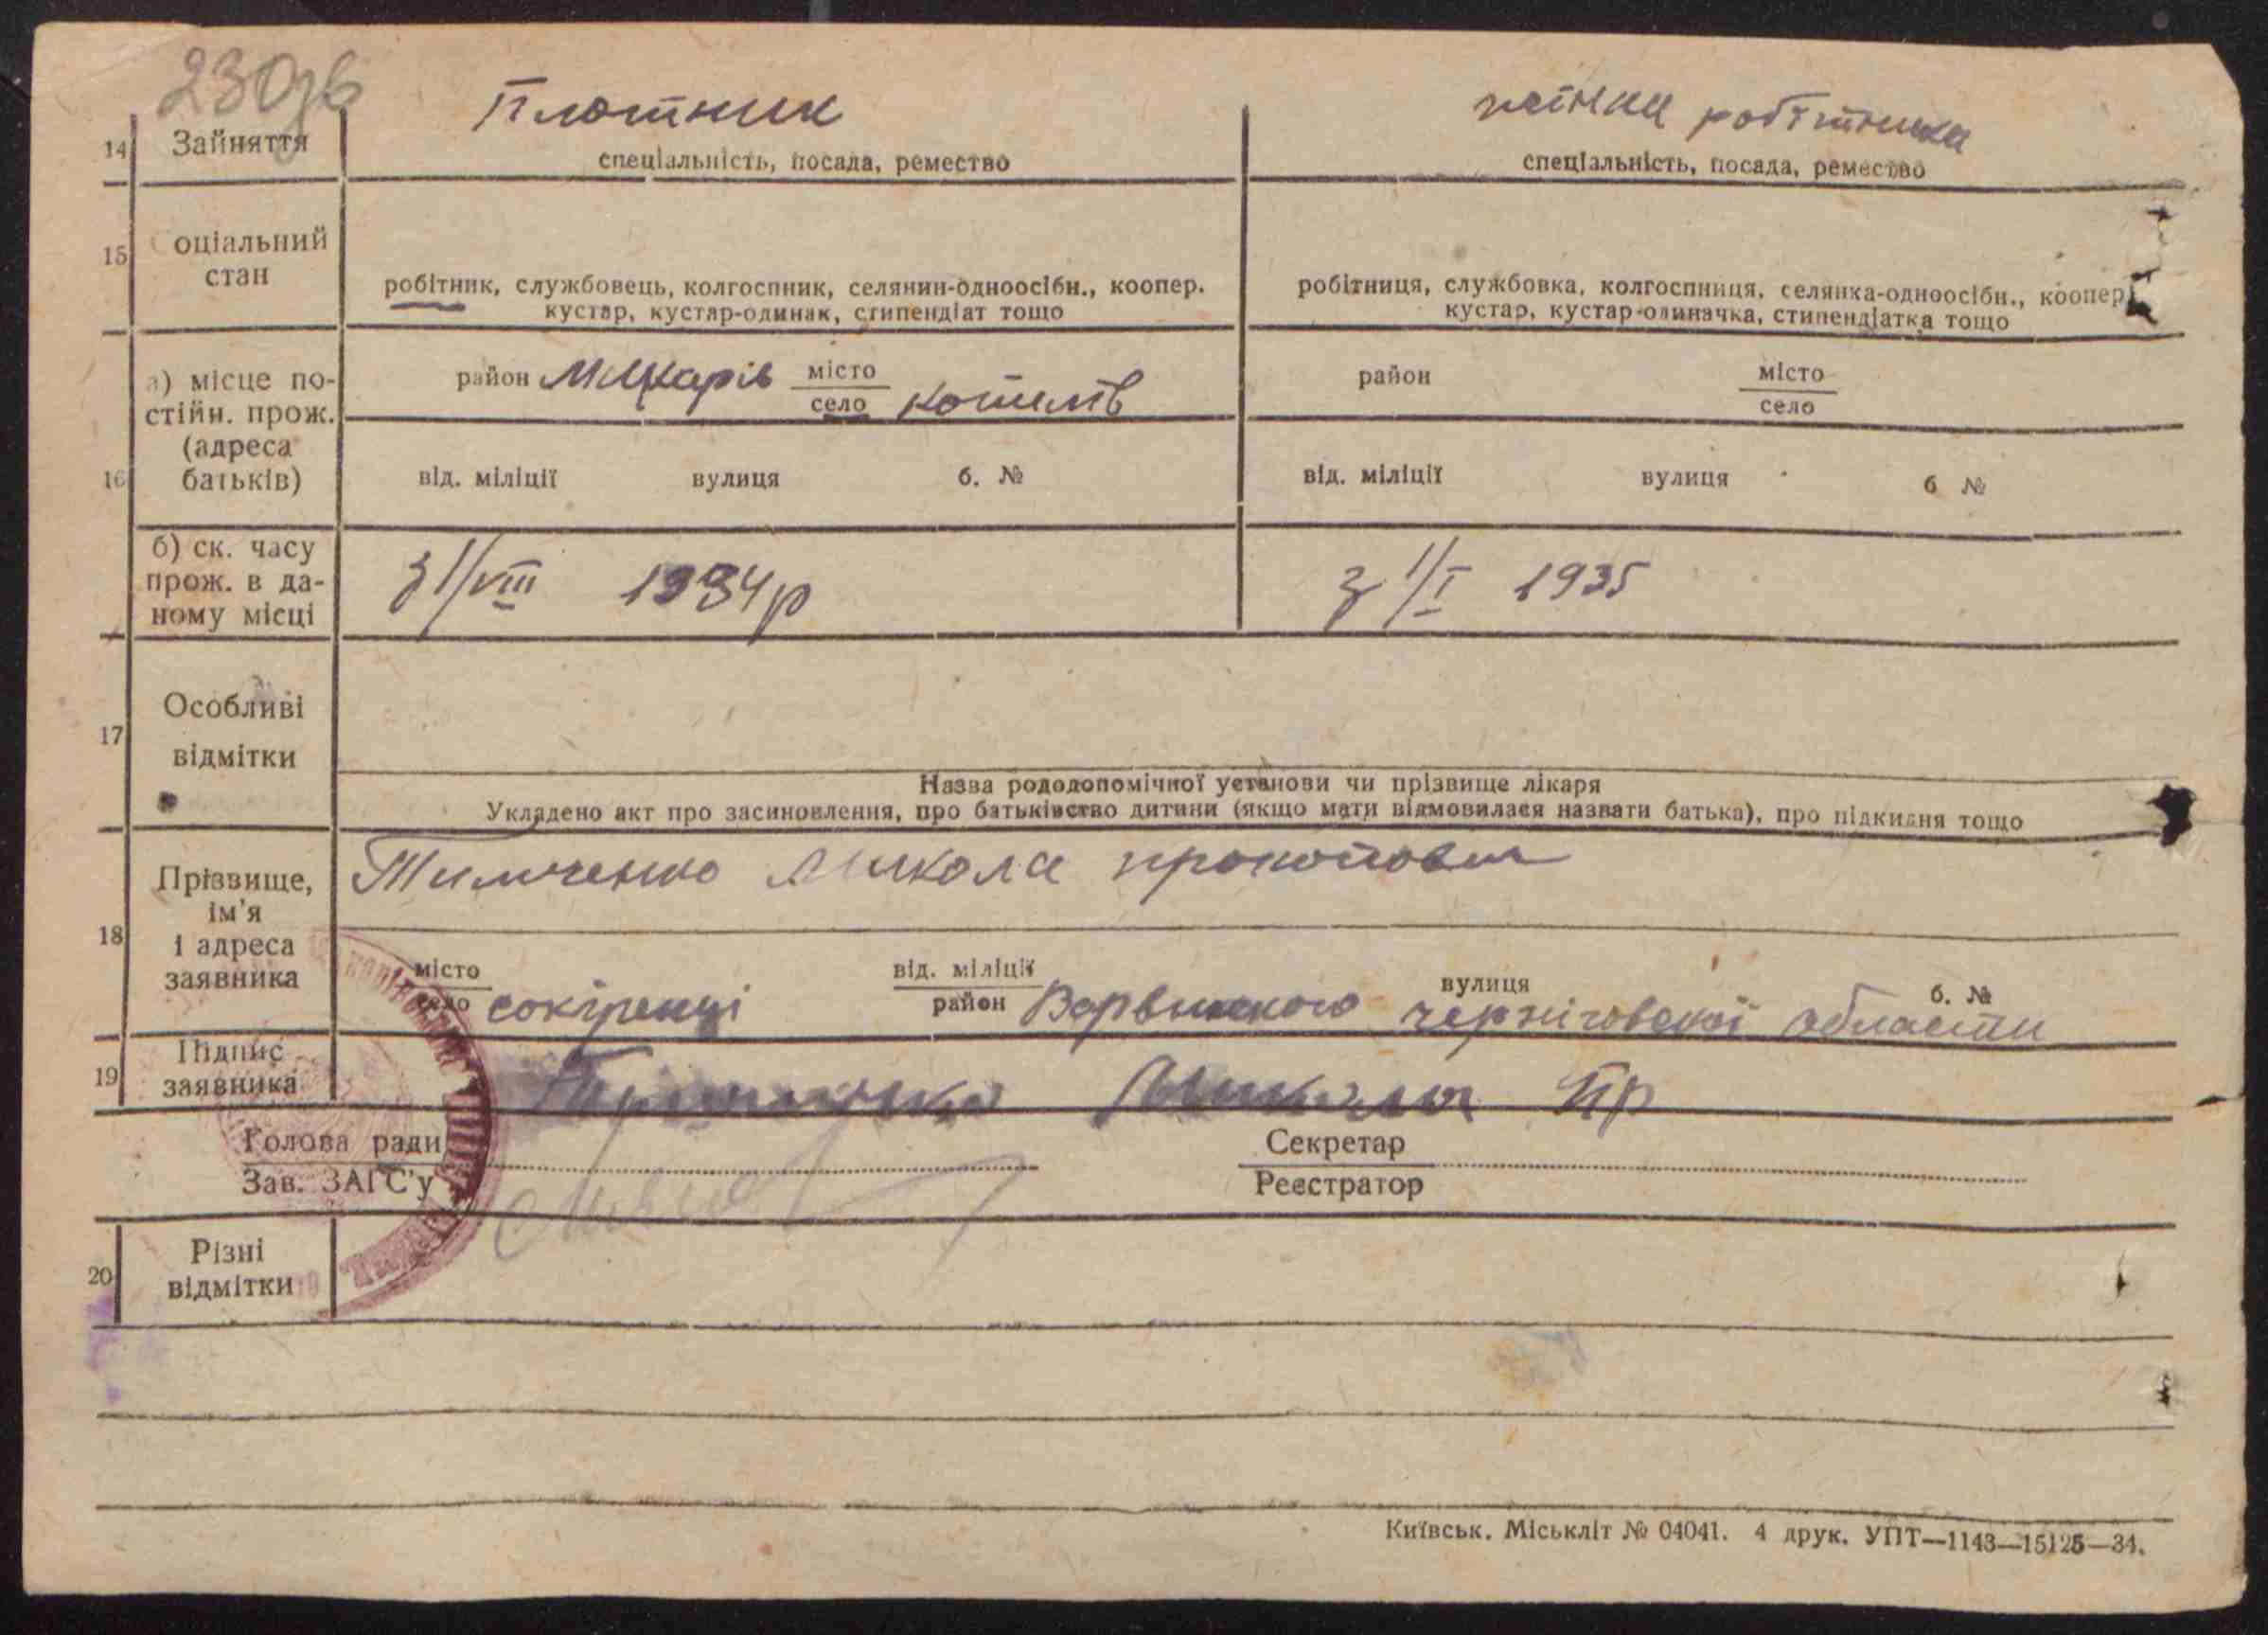 230зв
Плотник
жінка робітника
14 Зайняття
спеціальність, посада, ремество
спеціальність, посада, ремество
15 Соціальний стан
робітник, службовець, колгоспник, селянин-одноосібн., коопер.
кустар, кустар-одинак, стипендіат тощо
робітниця, службовка, колгоспниця, селянка-одноосібн., коопер.
кустар, кустар-одиначка, стипендіатка тощо
16
а) місце по-
стійн. прож.
(адреса
батьків)
район Макарів місто
село
район місто
село
від. міліції вулиця б. №
від. міліції вулиця б №
б) ск. часу
прож. в да-
ному місці
з 1/VIII 1934 р
з 1/I 1935
17 Особливі
відмітки
Назва рододопомічної установи чи прізвище лікаря
Укладено акт про засиновлення, про батьківство дитини (якщо мати відмовилася назвати батька), про підкидня тощо
18
Прізвище,
ім'я
і адреса
заявника
Тимченко Микола прокопович
місто
село сокіренці
від. міліції
район Варвинського
вулиця
черніговскої области
б. №
19 Підпис
заявника
Микола Пр
Голова ради
Зав. ЗАГС'у
Секретар
Реєстратор
20 Різні
відмітки
Київськ. Міськліт № 04041. 4 друк. УПТ—1143—15125—34.